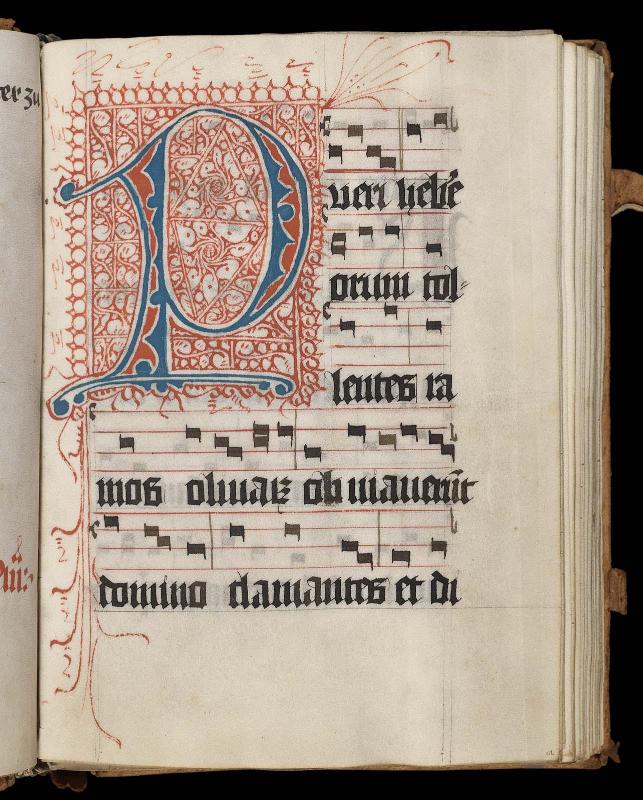 er zu
Pueri hebre
orum tol-
lentes ra
mos oliuaꝝ obuiauerūt
domino clamantes et di